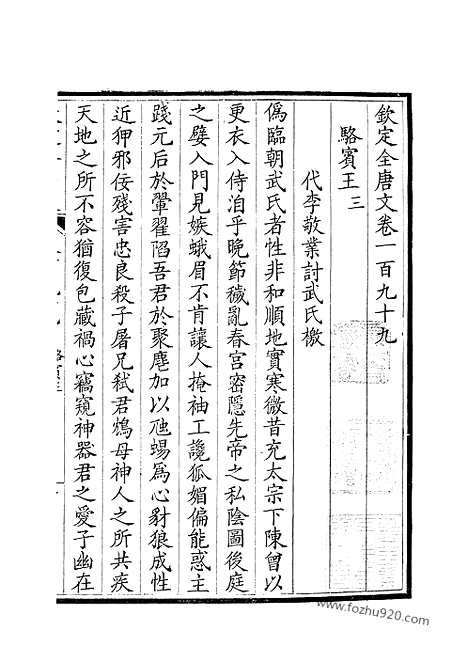 欽定全唐文卷一百九十九
駱賓王三
代李敬業討武氏檄
僞臨朝武氏者性非和順地實寒微昔充太宗下陳曾以
更衣入侍洎乎晚節穢亂春宮密隱先帝之私陰圖後庭
之嬖入門見嫉蛾眉不肯讓人掩袖工讒狐媚偏能惑主
踐元后於翬翟陷吾君於聚麀加以虺蜴爲心豺狼成性
近狎邪佞殘害忠良殺子屠兄弒君鴆母神人之所共疾
天地之所不容猶復包藏禍心竊窺神器君之愛子幽在
www.fozhu920.com